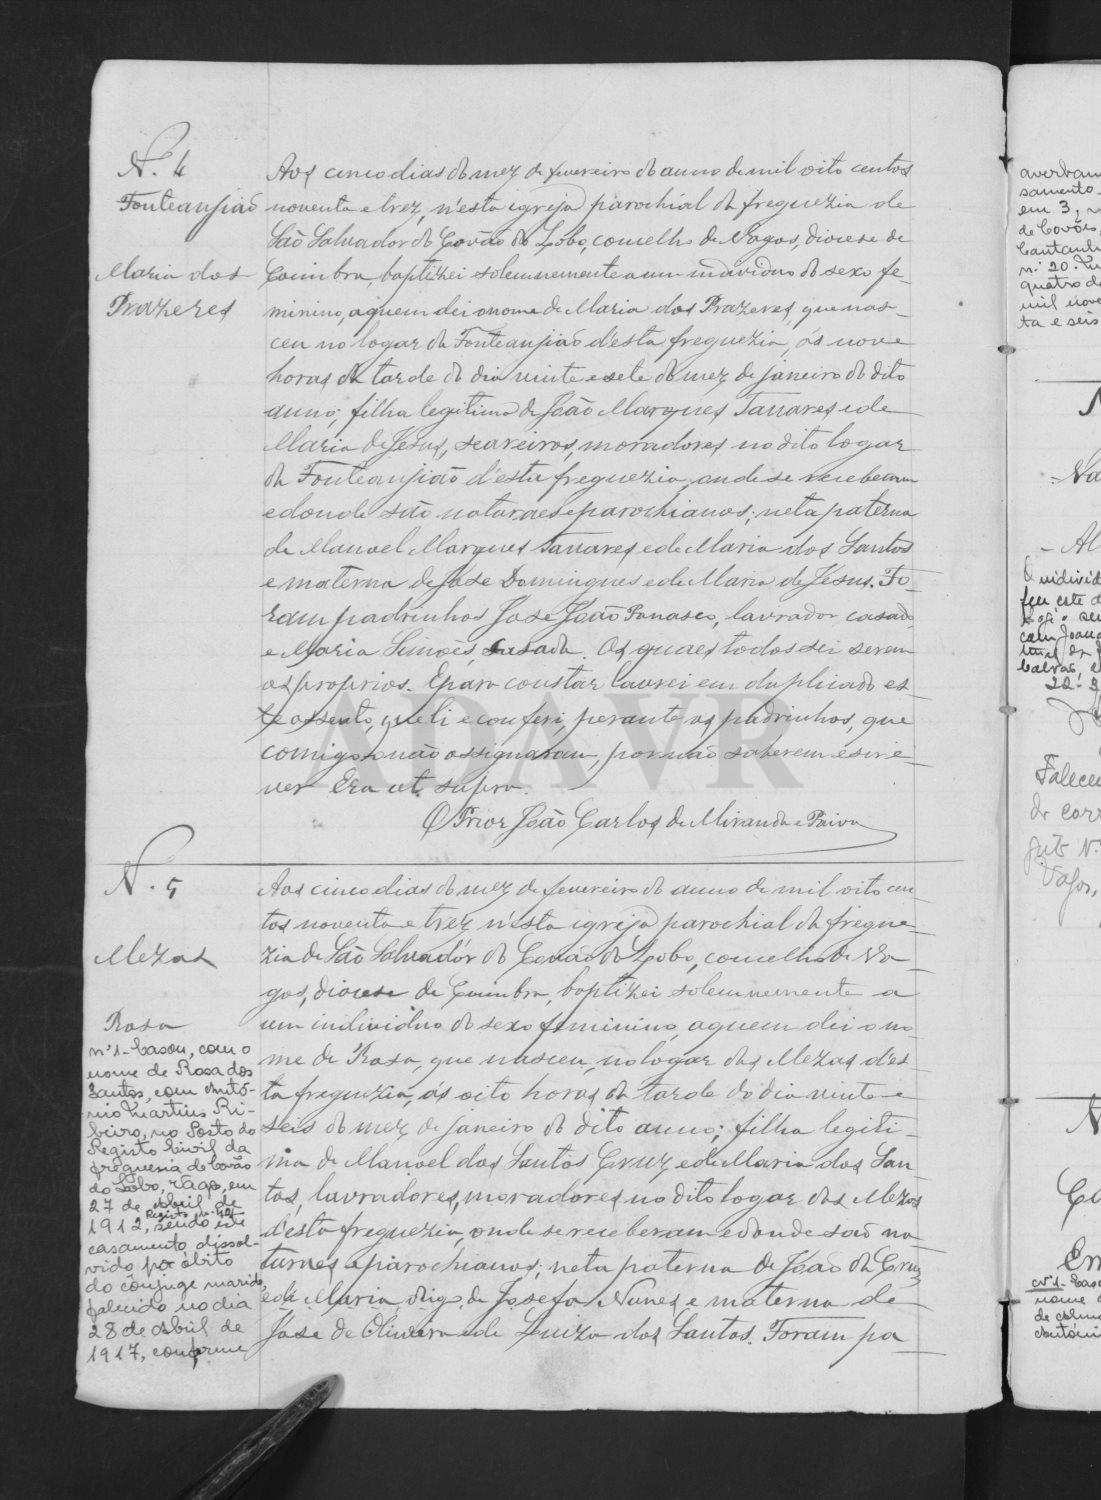 N. 4
Fonteanjiaõ
Maria dos
Prazeres
Aos cinco dias do mez de fevereiro do anno de mil oito centos
noventa e trez, n'esta igreja parochial da freguezia de
São Salvador do Covão do Lobo, concelho de Vagos, diocese de
Coimbra, baptizei solemnemente a um individuo do sexo fe-
minino, a quem dei o nome de Maria dos Prazeres, que nas-
ceu no logar da Fonteanjiaõ d'esta freguezia, ás nove
horas da tarde do dia vinte e sete do mez de janeiro do dito
anno; filha legitima de João Marques Tavares e de
Maria de Jesus, seareiros, moradores no dito logar
da Fonteanjiaõ d'esta freguezia, onde se receberam
e donde são naturaes e parochianos; neta paterna
de Manoel Marques Tavares e de Maria dos Santos
e materna de Jose Domingues e de Maria de Jesus. Fo-
ram padrinhos Jose João Panasco, lavrador casado,
e Maria Simões, casada. Os quaes todos sei serem
os proprios. E para constar lavrei em duplicado es-
te assento, que li e conferi, perante os padrinhos, que
comigo não assignaram, por não saberem escre-
ver Era ut supra.
O Prior João Carlos de Miranda e Paiva
N. 5
Mezas
Rosa
nº 1 - Casou, com o
nome de Rosa dos
Santos, com Antó-
nio Martins Ri-
beiro, no Posto do
Registo Civil da
freguesia de Covão
do Lobo, Vagos, em
27 de Abril de
1912, sendo este
casamento dissol-
vido por óbito
do cônjuge marido,
falecido no dia
28 de Abril de
1917, conforme
Aos cinco dias do mez de fevereiro do anno de mil oito cen
tos noventa e trez, n'esta igreja parochial da fregue-
zia de São Salvador do Covão do Lobo, concelho de Va-
gos, diocese de Coimbra, baptizei solemnemente a
um individuo do sexo feminino, a quem dei o no-
me de Rosa, que nasceu, no logar das Mezas d'es-
ta freguezia, ás oito horas da tarde do dia vinte e
seis do mez de janeiro do dito anno; filha legiti-
ma de Manoel dos Santos Cruz e de Maria dos San
tos, lavradores, moradores no dito logar das Mezas
d'esta freguezia, onde se receberam e donde saõ na
turaes e parochianos; neta paterna de João da Cruz
e de Maria, digo, de Josefa Nunes, e materna de
Jose de Oliveira e de Luiza dos Santos. Foram pa
averbam
samento
em 3,
de Covões,
Cantanh
n.º 20.
quatro de
mil nove
ta e seis
N
Na
Al
Falecu
de corr
Vagos,
N
Em
nº 1 - Casou
nome
ADAVR